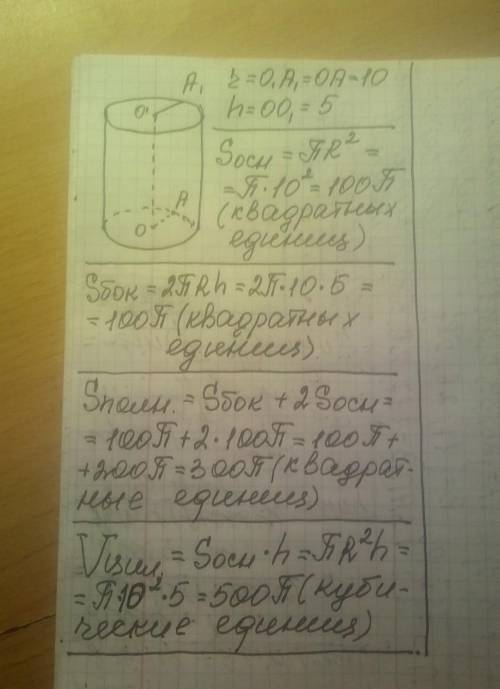 A₁
O'
A
O
r = O₁A₁ = OA = 10
h = OO₁ = 5
Sосн = ПR² =
= П·10² = 100П
(квадратных
единиц)
Sбок = 2ПRh = 2П·10·5 =
= 100П (квадратных
единиц)
Sполн. = Sбок + 2Sосн =
= 100П + 2·100П = 100П +
+ 200П = 300П (квадрат-
ные единиц)
Vцил. = Sосн·h = ПR²h =
= П·10²·5 = 500П (куби-
ческие единиц)